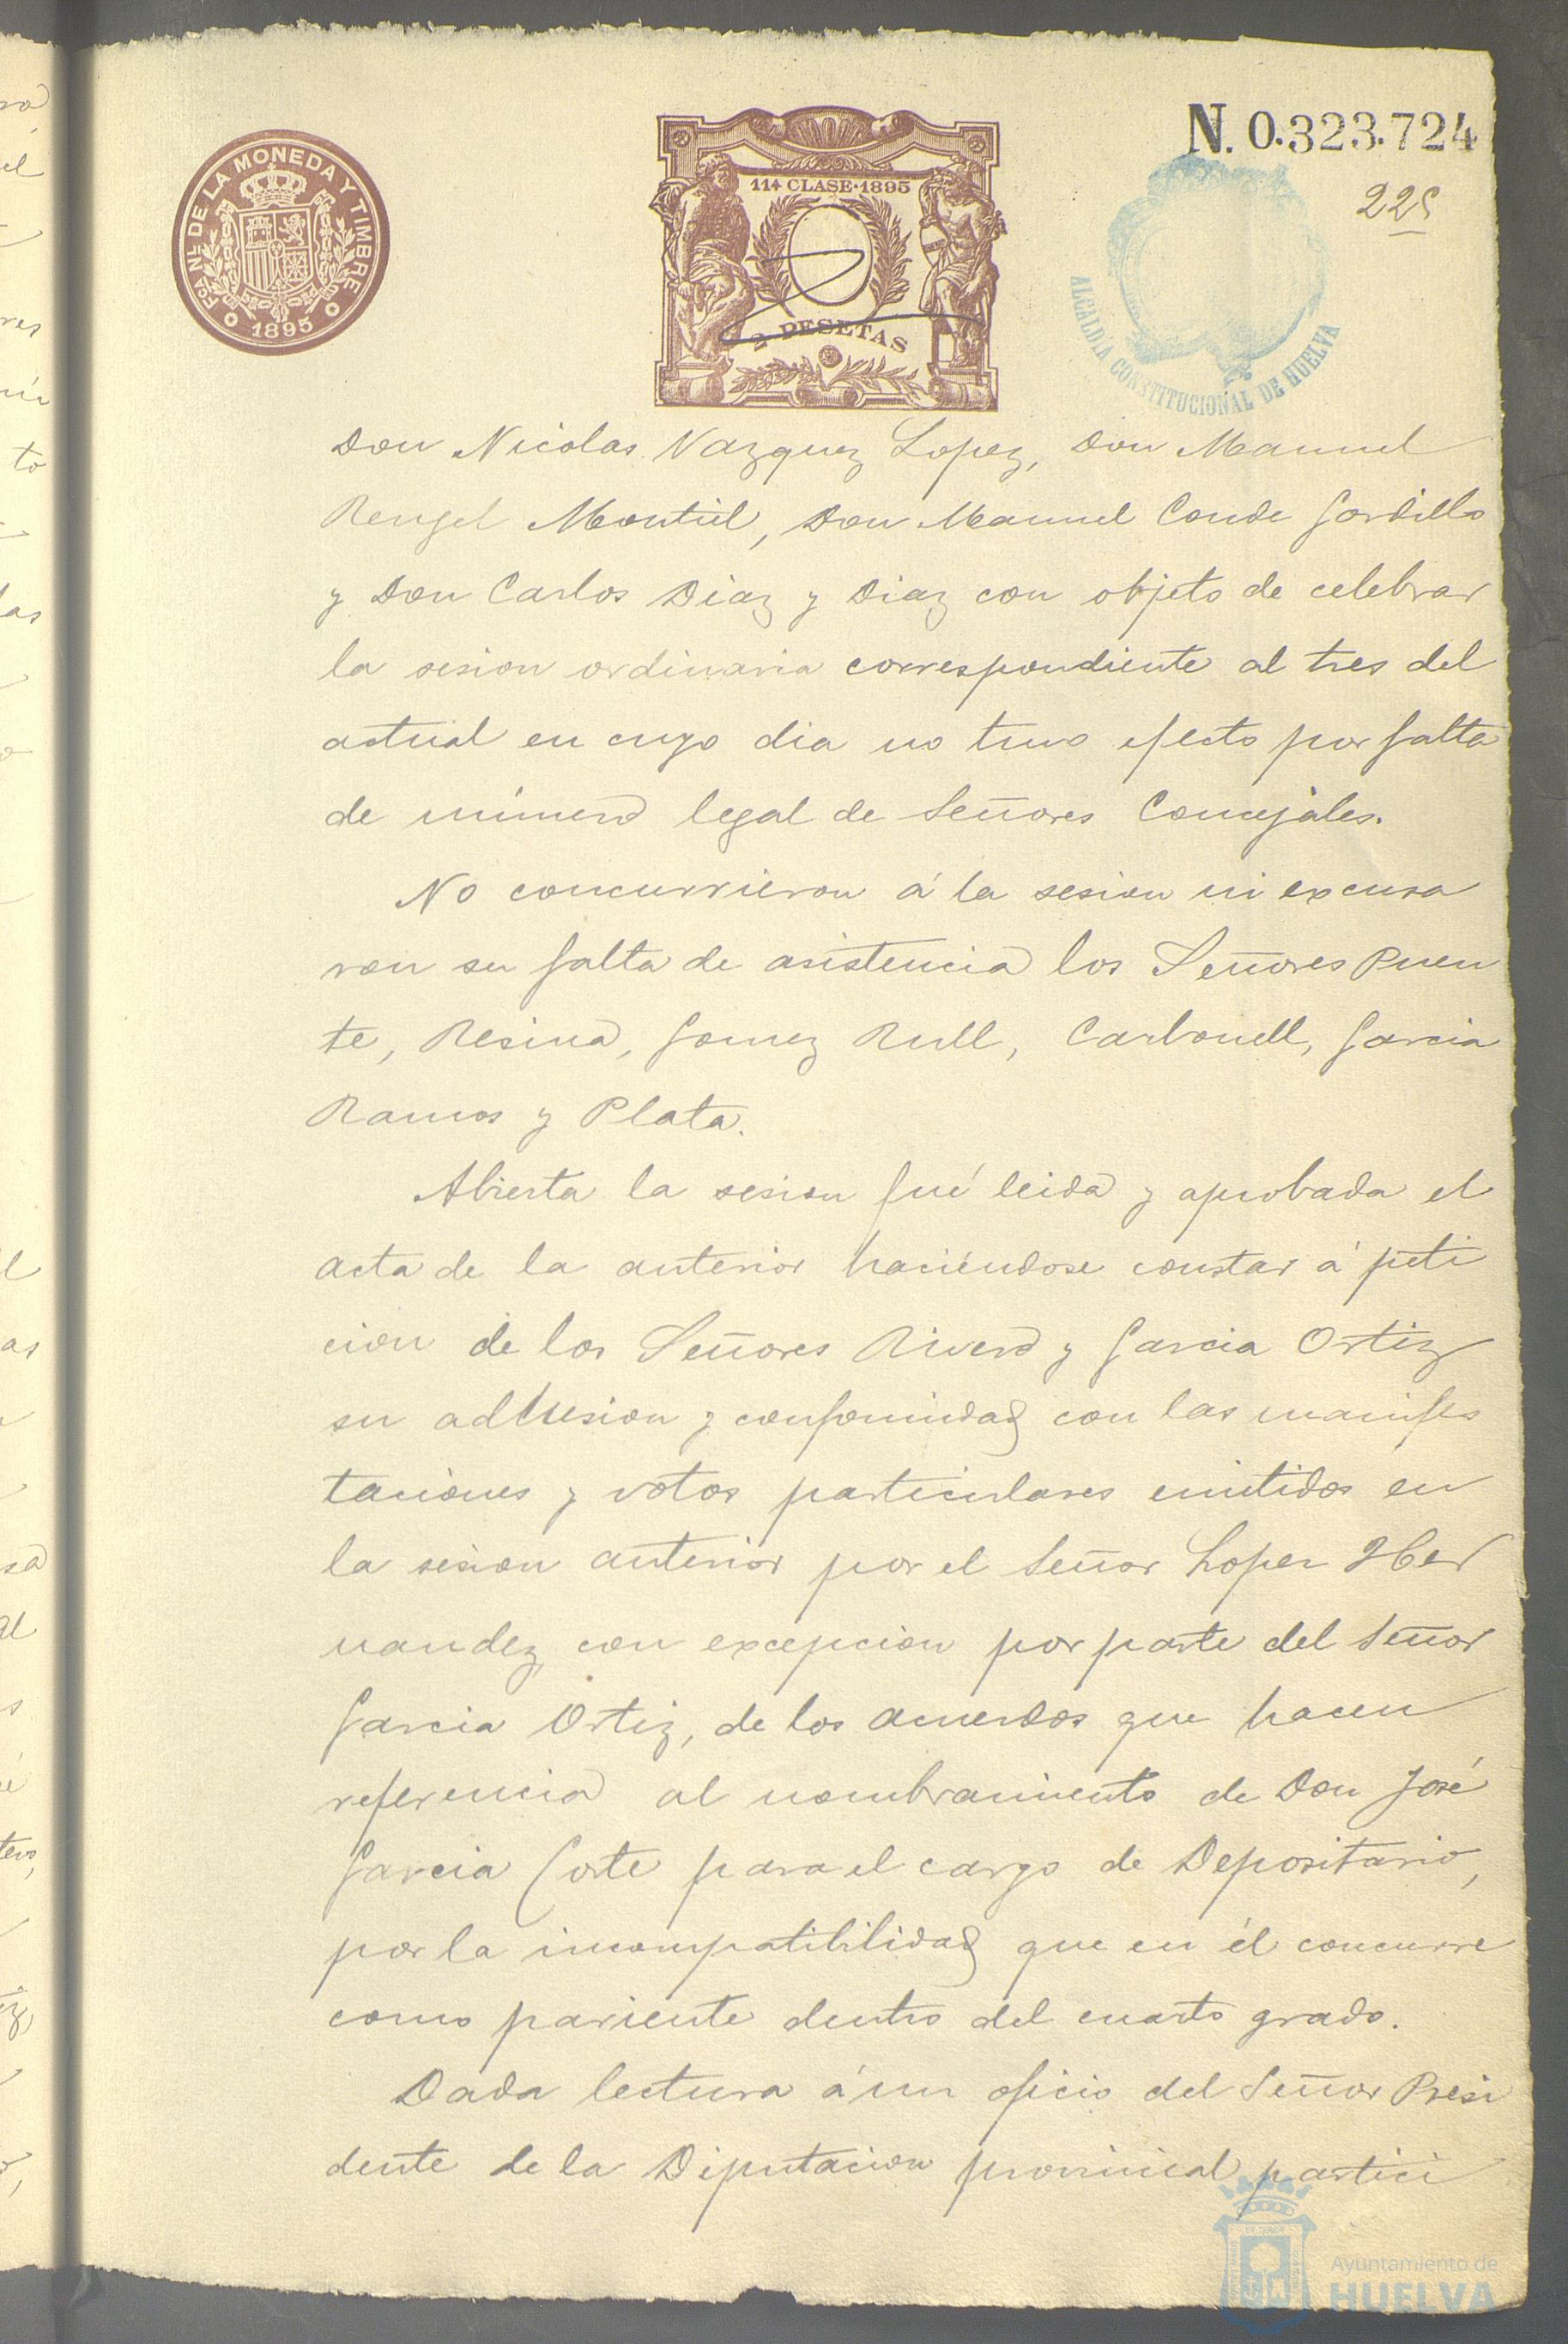 FCA NL DE LA MONEDA Y TIMBRE
1895
11ª CLASE·1895
2 PESETAS
N. 0.323.724
225
ALCALDIA CONSTITUCIONAL DE HUELVA
Don Nicolas Vazquez Lopez, Don Manuel
Rengel Montiel, Don Manuel Conde Gordillo
y Don Carlos Diaz y Diaz con objeto de celebrar
la sesion ordinaria correspondiente al tres del
actual en cuyo dia no tuvo efecto por falta
de número legal de Señores Concejales.
No concurrieron á la sesion ni excusa
ron su falta de asistencia los Señores Puen
te, Resina, Gomez Rull, Carbonell, Garcia
Ramos y Plata.
Abierta la sesion fué leida y aprobada el
acta de la anterior haciéndose constar á peti
cion de los Señores Rivero y Garcia Ortiz
su adhesion y conformidad con las manifes
taciones y votos particulares emitidos en
la sesion anterior por el Señor Lopez Her
nandez con excepcion por parte del Señor
Garcia Ortiz, de los acuerdos que hacen
referencia al nombramiento de Don José
Garcia Corte para el cargo de Depositario,
por la incompatibilidad que en él concurre
como pariente dentro del cuarto grado.
Dada lectura á un oficio del Señor Presi
dente de la Diputacion provincial partici
Ayuntamiento de
HUELVA